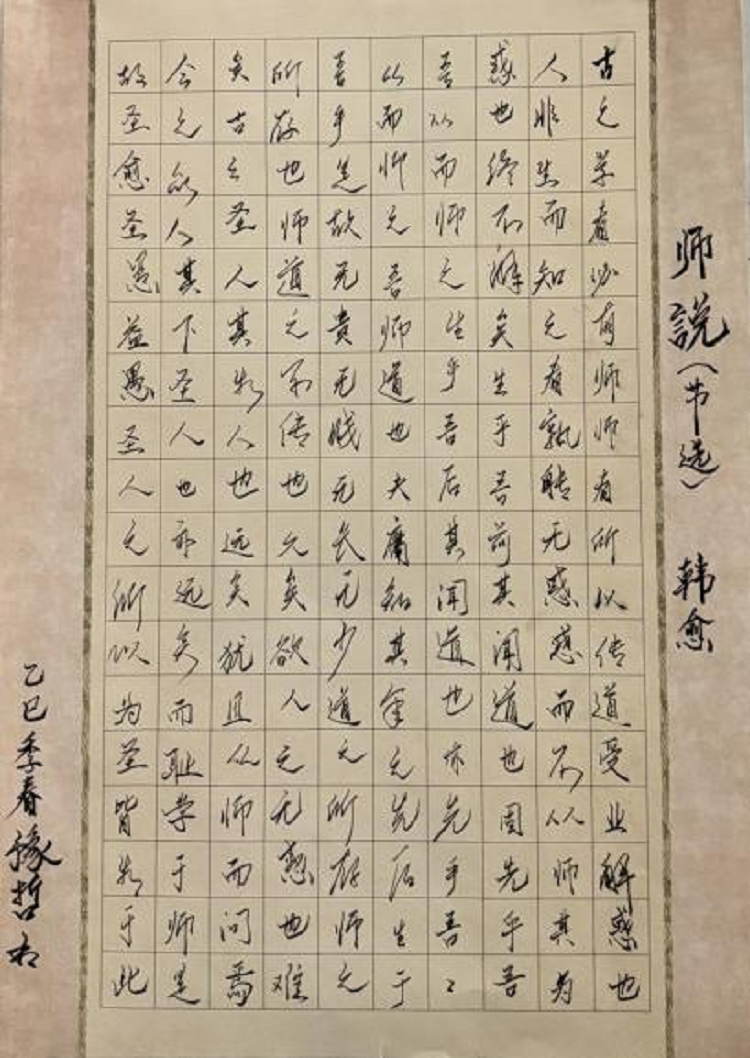 师說（节选） 韩愈
古之学者必有师师有所以传道受业解惑也
人非生而知之者孰能无惑惑而不从师其为
惑也终不解矣生乎吾前其闻道也固先乎吾
吾从而师之生乎吾后其闻道也亦先乎吾〻
从而师之吾师道也夫庸知其年之先后生于
吾乎是故无貴无贱无长无少道之所存师之
所存也师道之不传也久矣欲人之无惑也难
矣古之圣人其出人也远矣犹且从师而问焉
今之众人其下圣人也亦远矣而耻学于师是
故圣愈圣愚益愚圣人之所以为圣皆出于此
乙巳季春豫哲书